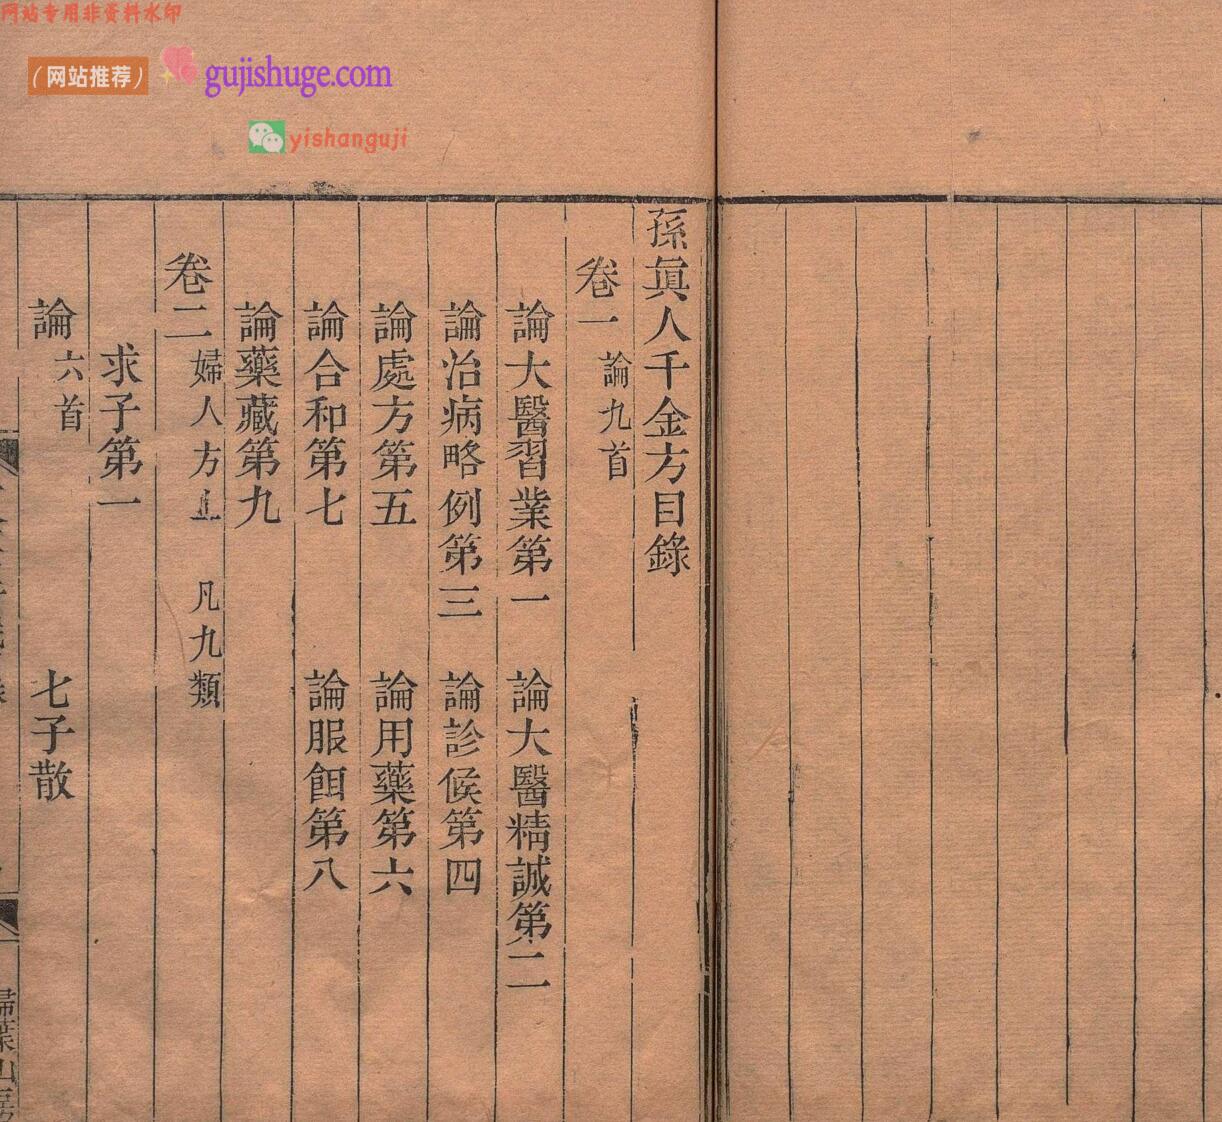 网站专用非资料水印
（网站推荐）
gujishuge.com
yishanguji
孫眞人千金方目錄
卷一 論九首
論大醫習業第一 論大醫精誠第二
論治病略例第三 論診候第四
論處方第五 論用藥第六
論合和第七 論服餌第八
論藥藏第九
卷二 婦人方上 凡九類
求子第一
論六首 七子散